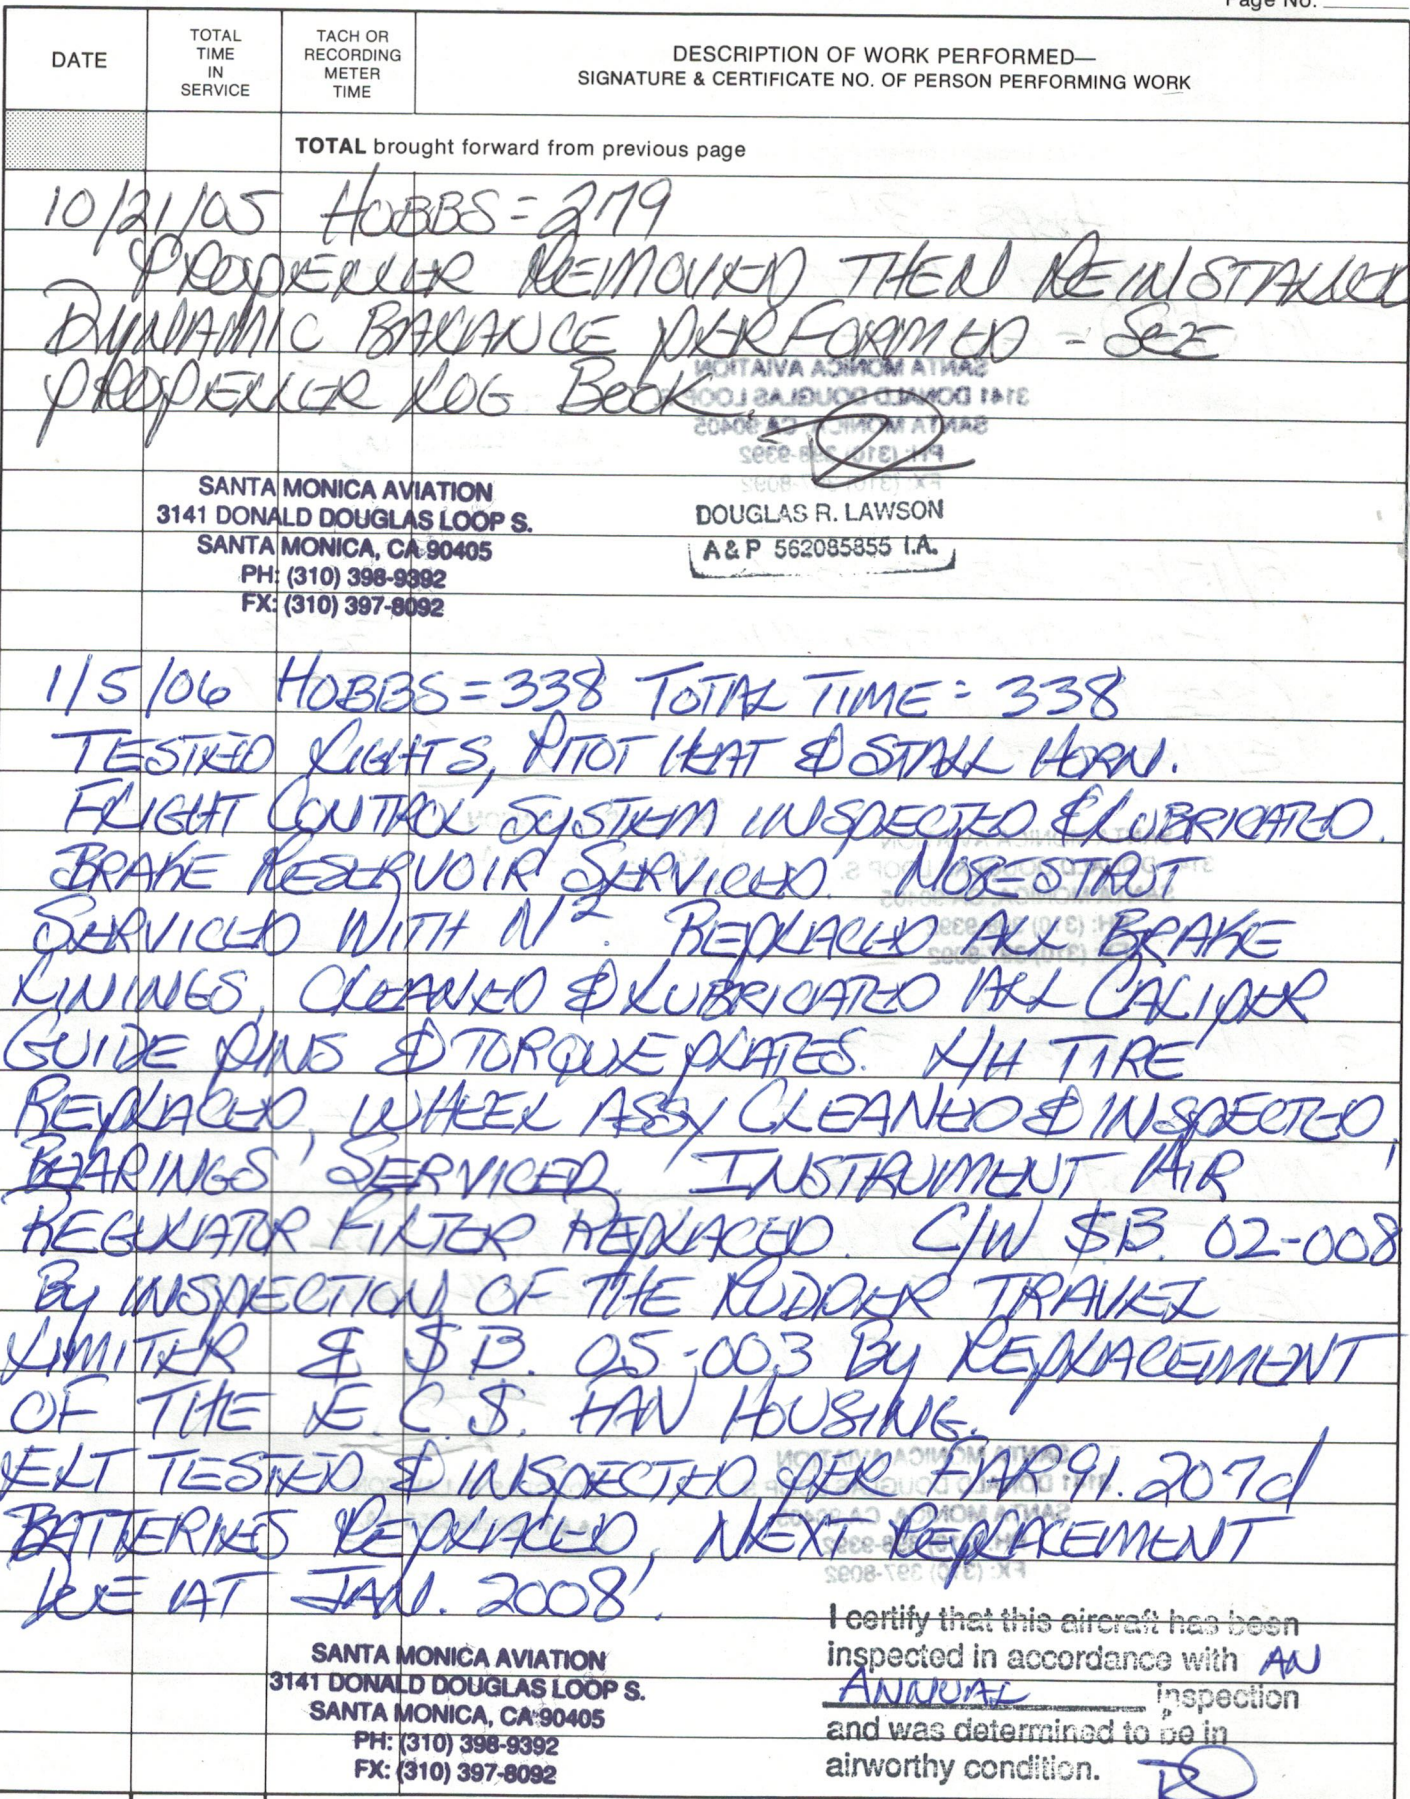 Page No.
DATE
TOTAL TIME IN SERVICE
TACH OR RECORDING METER TIME
DESCRIPTION OF WORK PERFORMED—
SIGNATURE & CERTIFICATE NO. OF PERSON PERFORMING WORK
TOTAL brought forward from previous page
10/21/05 HOBBS = 279
PROPELLER REMOVED THEN REINSTALLED
DYNAMIC BALANCE PERFORMED - SEE
PROPELLER LOG BOOK.
SANTA MONICA AVIATION
3141 DONALD DOUGLAS LOOP S.
SANTA MONICA, CA 90405
PH: (310) 398-9392
FX: (310) 397-8092
DOUGLAS R. LAWSON
A & P 562085855 I.A.
1/5/06 HOBBS = 338 TOTAL TIME = 338
TESTED LIGHTS, PITOT HEAT & STALL HORN.
FLIGHT CONTROL SYSTEM INSPECTED & LUBRICATED.
BRAKE RESERVOIR SERVICED. NOSE STRUT
SERVICED WITH N2. REPLACED ALL BRAKE
LININGS, CLEANED & LUBRICATED ALL CALIPER
GUIDE PINS & TORQUE PLATES. L/H TIRE
REPLACED, WHEEL ASSY CLEANED & INSPECTED,
BEARINGS SERVICED. INSTRUMENT AIR
REGULATOR FILTER REPLACED. C/W S.B. 02-008
BY INSPECTION OF THE RUDDER TRAVEL
LIMITER & S.B. 05-003 BY REPLACEMENT
OF THE E.C.S. FAN HOUSING.
ELT TESTED & INSPECTED PER FAR 91.207d
BATTERIES REPLACED, NEXT REPLACEMENT
DUE AT JAN. 2008.
SANTA MONICA AVIATION
3141 DONALD DOUGLAS LOOP S.
SANTA MONICA, CA 90405
PH: (310) 398-9392
FX: (310) 397-8092
I certify that this aircraft has been
inspected in accordance with AN
ANNUAL inspection
and was determined to be in
airworthy condition.